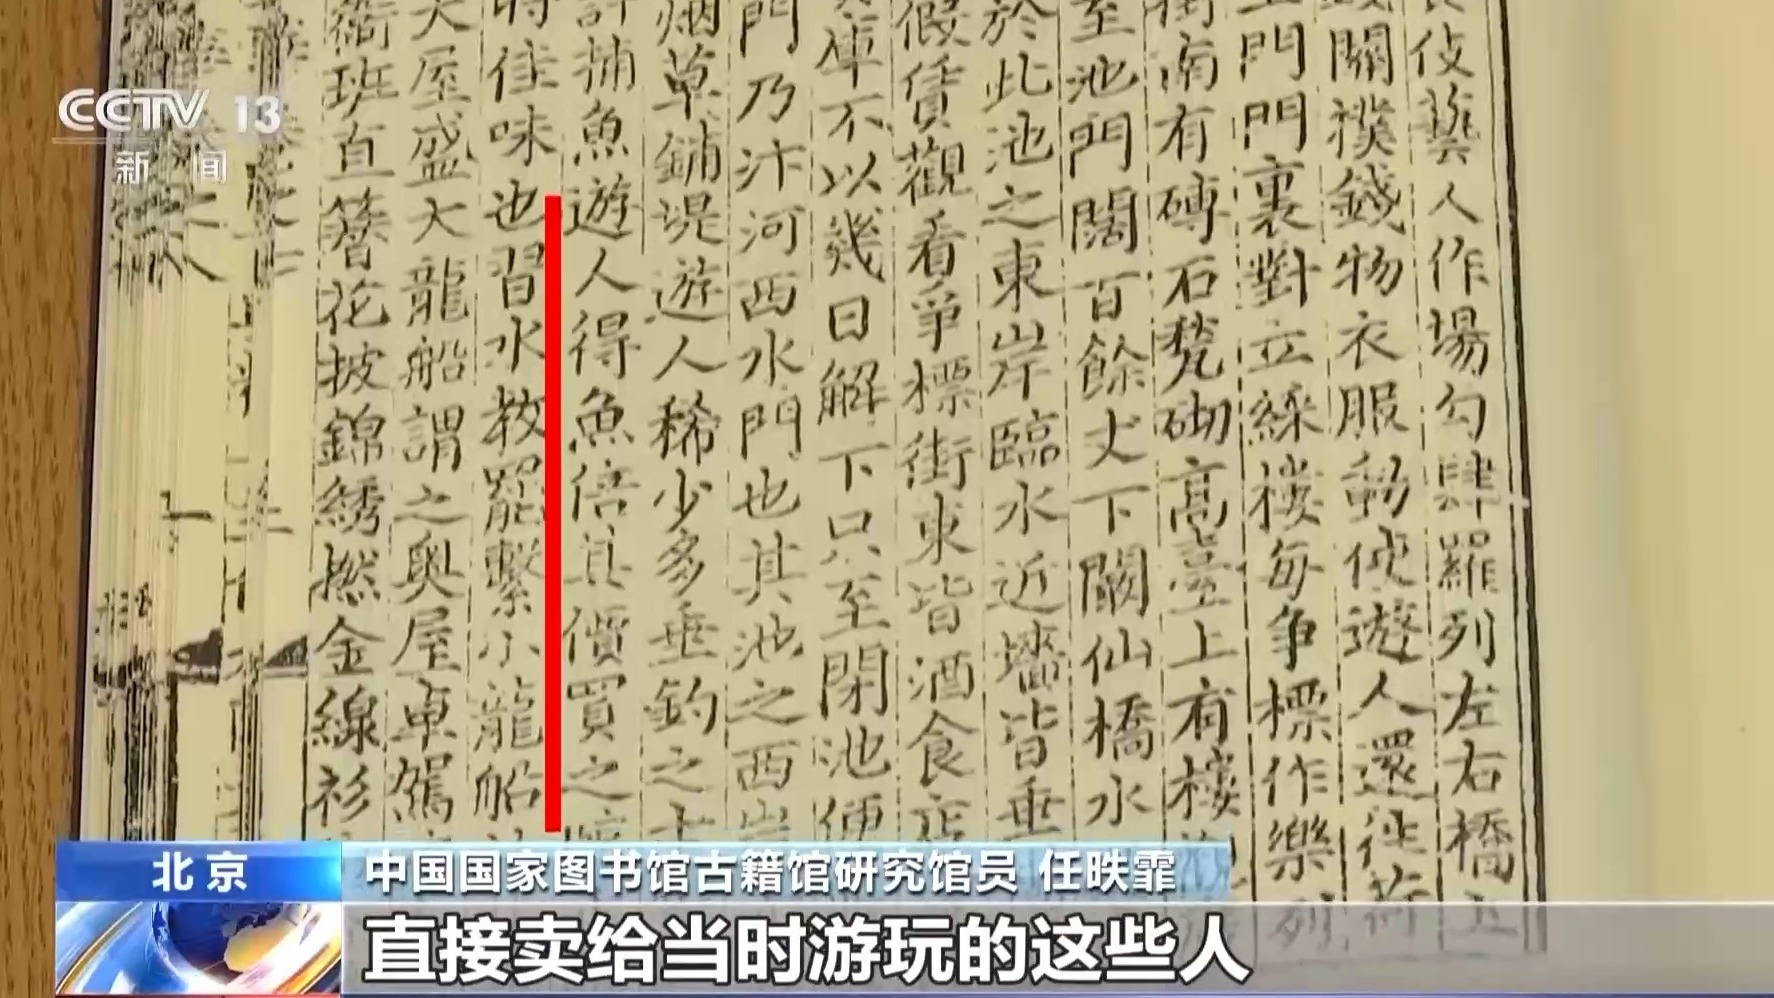 CCTV 13
新闻
伎藝人作場勾肆羅列左右橋上
關撲錢物衣服動使遊人還往荷
門門裏對立綵樓每爭標作樂列
街南有磚石甃砌高臺上有樓
至池門闊百餘丈下闞仙橋水
於此池之東岸臨水近墻皆垂
假賃觀看爭標街東皆酒食店
庫不以幾日解下只至閉池便
門乃汴河西水門也其池之西岸
烟草鋪堤遊人稀少多垂釣之士
捕魚遊人得魚倍其價買之
時佳味也習水教罷繫小龍船
大屋盛大龍船謂之奥屋車駕
衙班直簪花披錦綉撚金線衫
北京
中国国家图书馆古籍馆研究馆员 任昳霏
直接卖给当时游玩的这些人